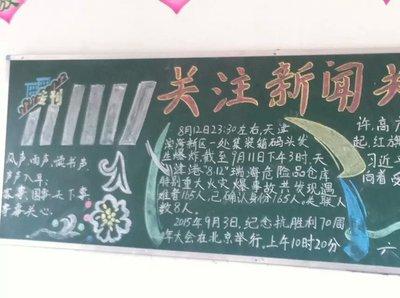 关注新闻关
专刊
风声,雨声,读书声
声声入耳:
家事,国事,天下事
事事关心.
8月12日23:30左右,天津
滨海新区一处集装箱码头发
生爆炸,截至9月11日下午3时,天
津港"8·12"瑞海危险品仓库
特别重大火灾爆事故共发现遇
难者165人,已确认身份165人,失联人
数8人。
2015年9月3日,纪念抗胜利70周
年大会在北京举行,上午10时20分
许,高
起,红旗
习近平
向着
六